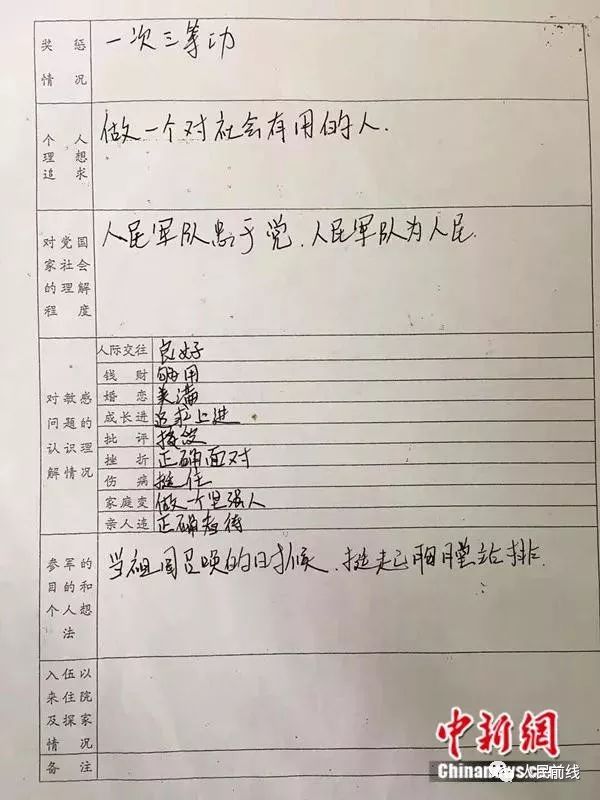 奖惩 一次三等功
情况
个人 做一个对社会有用的人.
理想
追求
对党国 人民军队忠于党、人民军队为人民.
家社会
的理解
程度
对敏感
问题的
认识理
解情况
人际交往 良好
钱财 够用
婚恋 美满
成长进 追求上进
批评 接受
挫折 正确面对
伤病 挺住
家庭变 做一个坚强人
亲人遗 正确对待
参军的 当祖国召唤的时候、挺起胸膛站排.
目的和
个人想
法
入伍以
来住院
及探家
情况
备注
中新网
Chinanews.com
人民前线